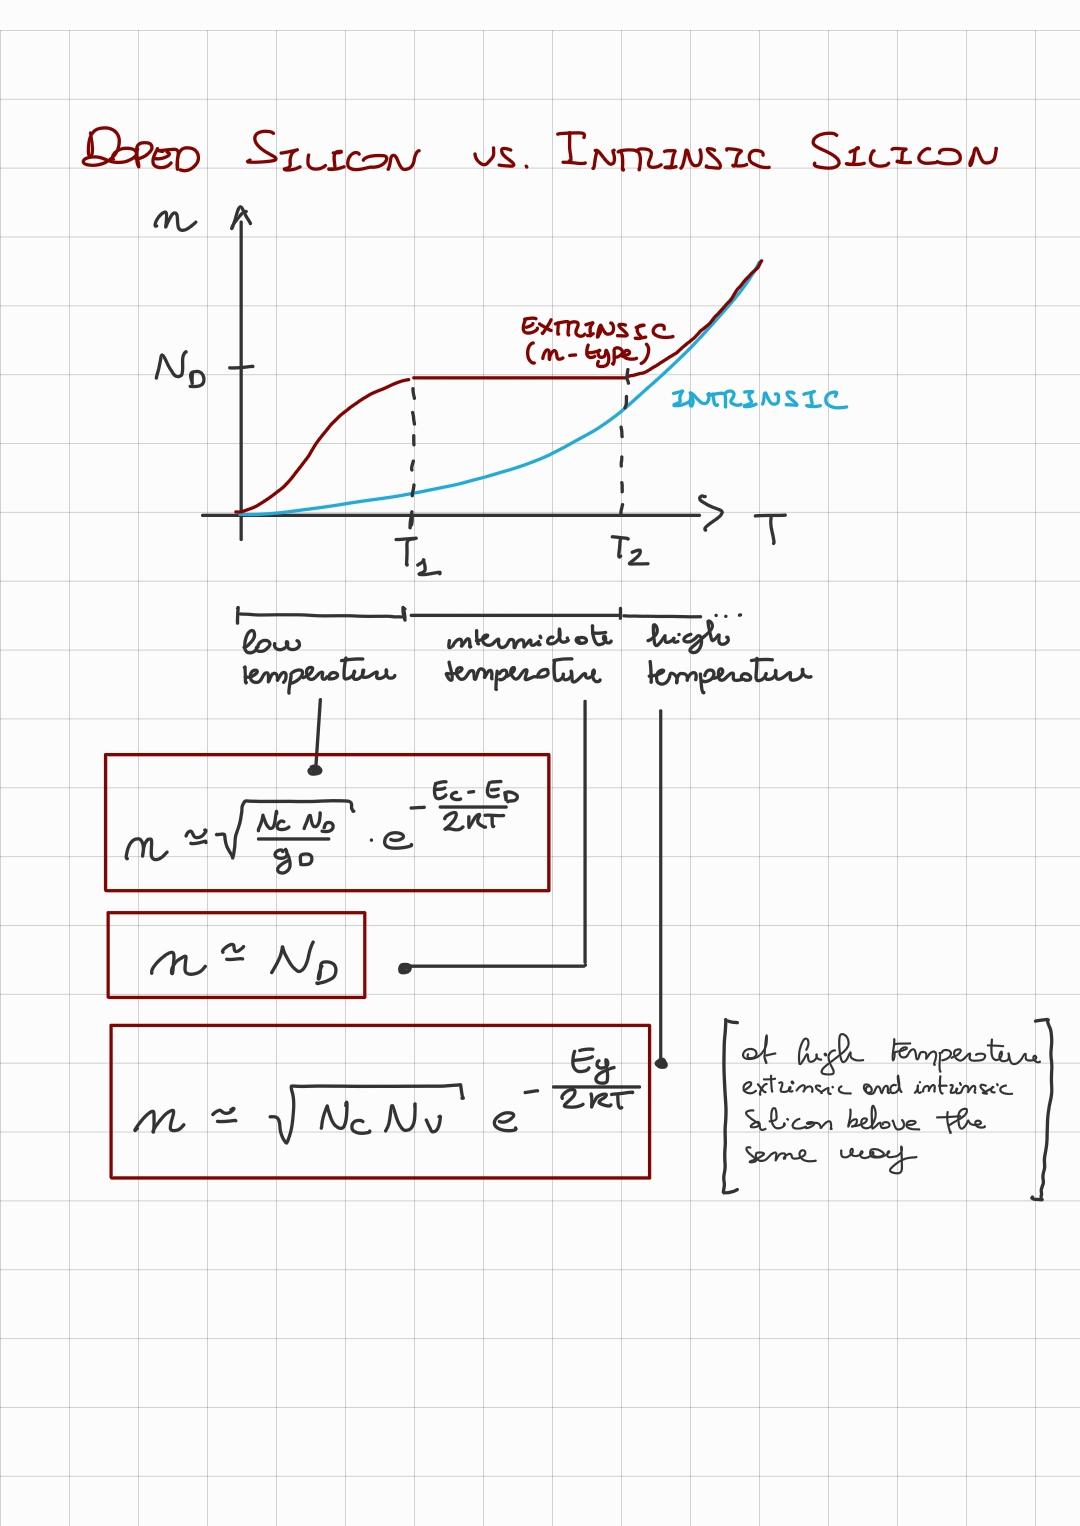 DOPED SILICON vs. INTRINSIC SILICON
n
N_D
EXTRINSIC
(n-type)
INTRINSIC
T
T_1
T_2
low
temperature
intermidate
temperature
high
temperature
...
n ≃ √(N_C N_D / g_D) · e^(-(E_C - E_D)/(2KT))
n ≃ N_D
n ≃ √(N_C N_V) e^(-E_g/(2KT))
[at high temperature
extrinsic and intrinsic
Silicon behave the
same way]